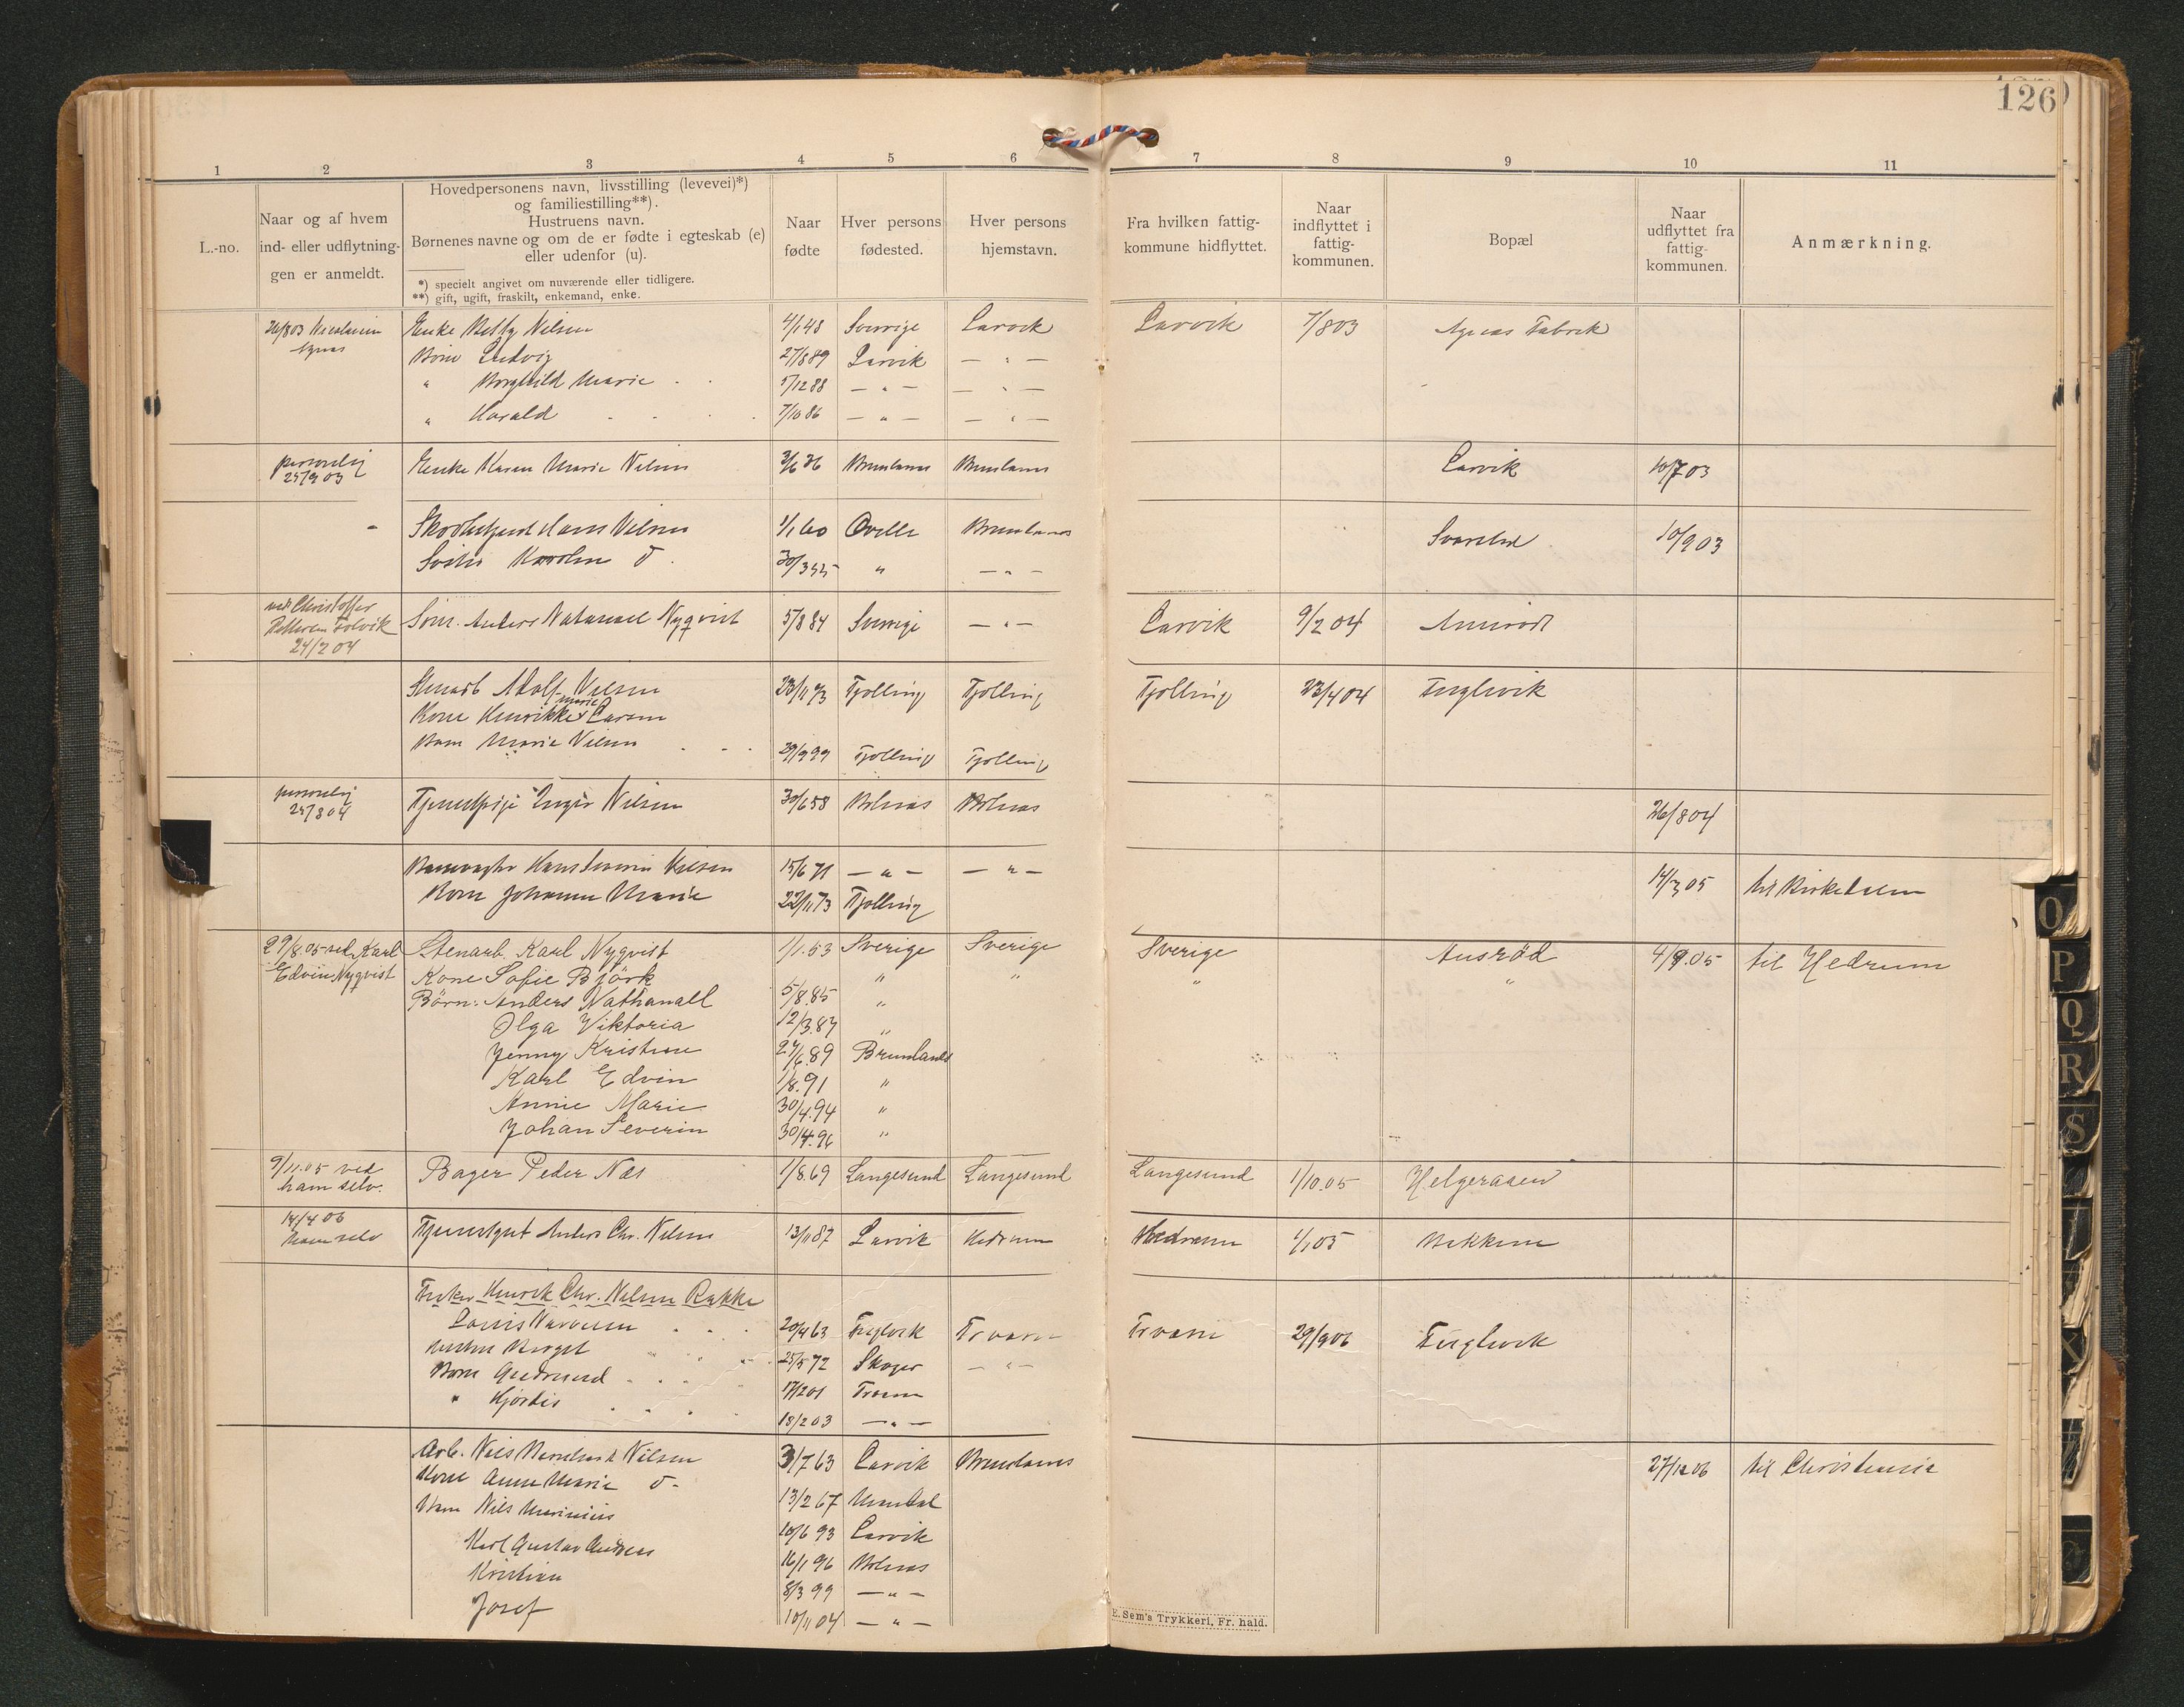 126
1 2 3 4 5 6 7 8 9 10 11
L.-no.
Naar og af hvem
ind- eller udflytning-
gen er anmeldt.
Hovedpersonens navn, livsstilling (levevei)*)
og familiestilling**).
Hustruens navn.
Børnenes navne og om de er fødte i egteskab (e)
eller udenfor (u).
*) specielt angivet om nuværende eller tidligere.
**) gift, ugift, fraskilt, enkemand, enke.
Naar
fødte
Hver persons
fødested.
Hver persons
hjemstavn.
Fra hvilken fattig-
kommune hidflyttet.
Naar
indflyttet i
fattig-
kommunen.
Bopæl
Naar
udflyttet fra
fattig-
kommunen.
Anmærkning.
Enke Betty Nilsen 4/1 48 Sverrige Larvik Larvik 7/8 03 Agnes Fabrik
Børn Ludvig 27/8 89 Larvik — " —
" Borghild Marie 5/12 88 — " — — " —
" Harald 7/10 86 — " — — " —
personlig
25/9 03
Enke Karen Marie Nilsen 3/6 26 Brunlanes Brunlanes Larvik 10/7 03
Hans Nilsen 1/1 60 Brunlanes 10/9 03
Karoline 30/3 55 " — " —
ved Christoffer
24/2 04
Anders Natanael Nyqvist 5/8 84 Sverrige — " — Larvik 9/2 04
Stenarb Adolf Nilsen 23/11 73 Tjølling Tjølling Tjølling 23/4 04 Fuglevik
Kone Henrikke Marie Larsen
Barn Marie Nilsen 29/9 99 Tjølling Tjølling
personlig
25/8 04
Tjenestpige Inger Nilsen 30/6 58 26/8 04
Hans Severin Nilsen 15/6 71 — " — — " — 14/3 05 til
Kone Johanne Marie 22/11 73 Tjølling
29/8.05 ved Karl
Edvin Nyqvist
Stenarb. Karl Nyqvist 1/1.53 Sverige Sverige Sverige Ausrød 4/9.05 til Hedrum
Kone Sofie Björk " " " "
Börn: Anders Nathanall 5/8.85 "
Olga Viktoria 12/3.87 "
Jenny Kristine 24/6.89 Brunlanes
Karl Edvin 1/8.91 "
Annie Marie 30/4.94 "
Johan Severin 30/4.96 "
9/11.05 ved
ham selv.
Bager Peder Næs 1/8.69 Langesund Langesund Langesund 1/10.05 Helgeraaen
14/4 06
ham selv
Tjenestgut Anders Chr. Nilsen 13/11 87 Larvik Hedrum Hedrum 1/1 05 Bakkene
Henrik Chr. Nilsen Rakke
20/4 63 Fuglevik 29/9 06 Fuglevik
25/5 72 Skoger — " —
Barn Gudrund 17/2 01
" Hjørdis 18/2 03 — " —
Arb. Nils Bernhard Nilsen 3/7 63 Larvik Brunlanes 27/12 06 til Christiania
Kone Anne Marie 13/2 67 Mandal
Børn Nils Marinius 10/6 93 Larvik
Karl Gustav Anders 16/1 96
Kristian 8/3 99 — " —
Josef 10/11 04 — " —
E. Sem's Trykkeri, Fr. hald.
O
P
Q
R
S